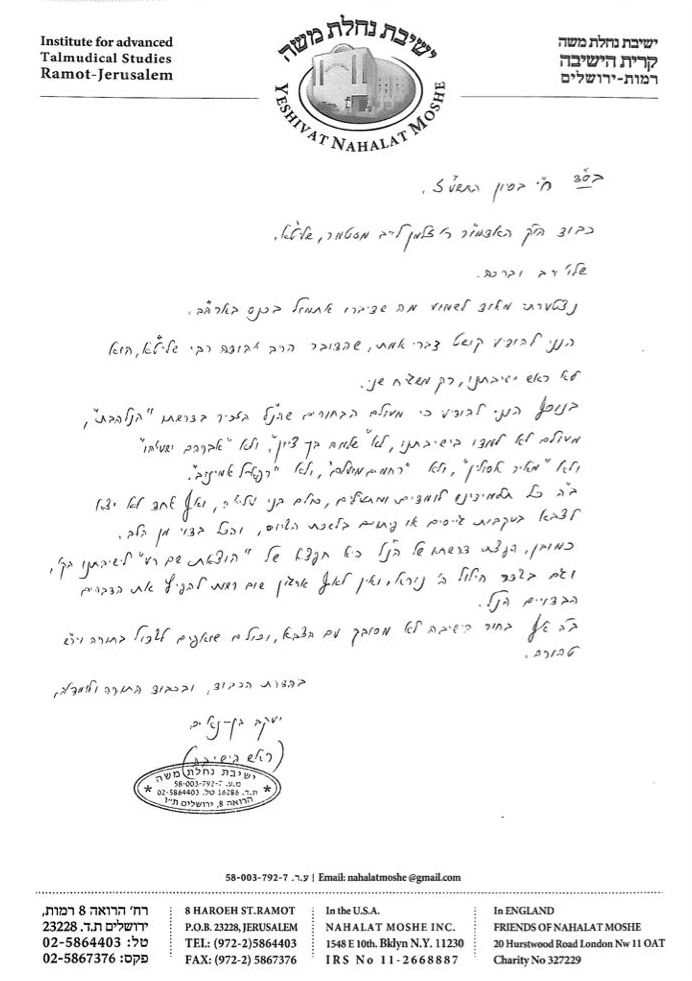 Institute for advanced
Talmudical Studies
Ramot-Jerusalem
ישיבת נחלת משה
YESHIVAT NAHALAT MOSHE
ישיבת נחלת משה
קרית הישיבה
רמות-ירושלים
בס"ד ח' בסיון התשע"ז.
כבוד הה"ק האדמו"ר ר' זלמן ל"ב מסטמר, שליט"א.
שלו' רב וברכה.
נצטערתי מאוד לשמוע מה שדיברו אתמול בכנס בארה"ב.
הנני להודיע קושט דברי אמת, שהדובר הרב יהודה רבי שליט"א, הוא
לא ראש ישיבתנו, רק משגיח שני.
בנוסף הנני להודיע כי מעולם הבחורים שהנ"ל הזכיר בדרשתו "הנלהבת",
מעולם לא למדו בישיבתנו, לא "שלמה בן ציון", ולא "אברהם ישעיהו"
ולא "מאיר אסולין", ולא "רחמים", ולא "רפאל אמינוב".
ב"ה כל תלמידינו לומדים ומתעלים, כולם בני עליה, ואף אחד לא יצא
לצבא בעקבות גיוסים או פיתויים בלשכת הגיוס, והכל בדוי מן הלב.
כמובן, הפצת דרשתו של הנ"ל היא חפצא של "הוצאת שם רע" לישיבתנו הק',
וגם בגדר חילול ה' נורא, ואין לאף ארגון שום רשות להפיץ את הדברים
הבדויים הנ"ל.
ב"ה אף בחור בישיבה לא מסובך עם הצבא, וכולם שואפים לגדול בתורה ויר"ש
טהורה.
בהדרת הכבוד, ובכבוד התורה ולומדיה,
יעקב בן-נאים
(ראש הישיבה)
ישיבת נחלת משה
מ.ע. 58-003-792-7
ת.ד. 16286 טל. 02-5864403
הרואה 8, ירושלים ת"ו
58-003-792-7 ע.ר. | Email: nahalatmoshe@gmail.com
רח' הרואה 8 רמות,
ירושלים ת.ד. 23228
טל: 02-5864403
פקס: 02-5867376
8 HAROEH ST.RAMOT
P.O.B. 23228, JERUSALEM
TEL: (972-2)5864403
FAX: (972-2) 5867376
In the U.S.A.
NAHALAT MOSHE INC.
1548 E 10th. Bklyn N.Y. 11230
IRS No 11-2668887
In ENGLAND
FRIENDS OF NAHALAT MOSHE
20 Hurstwood Road London Nw 11 OAT
Charity No 327229